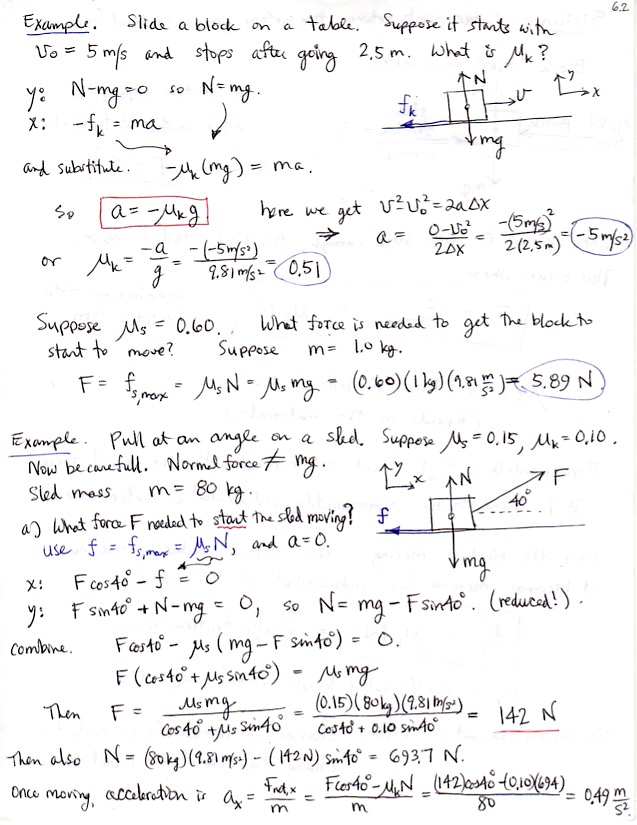 6.2
Example. Slide a block on a table. Suppose it starts with
v₀ = 5 m/s and stops after going 2.5 m. What is μₖ?
y: N-mg=0 so N=mg.
N
y
x
fₖ
v
mg
x: -fₖ = ma
and substitute. -μₖ(mg) = ma.
so a = -μₖg here we get v²-v₀²=2aΔx
⇒ a = (0-v₀²)/(2Δx) = -(5m/s)²/(2(2.5m)) = -5 m/s²
or μₖ = -a/g = -(-5m/s²)/(9.81 m/s²) = 0.51
Suppose μₛ = 0.60. What force is needed to get the block to
start to move? Suppose m = 1.0 kg.
F = fₛ,max = μₛN = μₛmg = (0.60)(1kg)(9.81 m/s²) = 5.89 N
Example. Pull at an angle on a sled. Suppose μₛ=0.15, μₖ=0.10.
Now be carefull. Normal force ≠ mg.
Sled mass m = 80 kg.
y
x
N
F
40°
f
mg
a) What force F needed to start the sled moving?
use f = fₛ,max = μₛN, and a=0.
x: Fcos40° - f = 0
y: F sin40° + N-mg = 0, so N= mg - Fsin40°. (reduced!).
combine. Fcos40° - μₛ(mg - F sin40°) = 0.
F(cos40° + μₛsin40°) = μₛmg
Then F = μₛmg/(cos40° + μₛ sin40°) = (0.15)(80kg)(9.81m/s²)/(cos40° + 0.10 sin40°) = 142 N
Then also N = (80kg)(9.81m/s²) - (142N) sin40° = 693.7 N.
Once moving, acceleration is aₓ = Fₙₑₜ,ₓ/m = (Fcos40° - μₖN)/m = ((142)cos40° - (0.10)(694))/80 = 0.49 m/s².